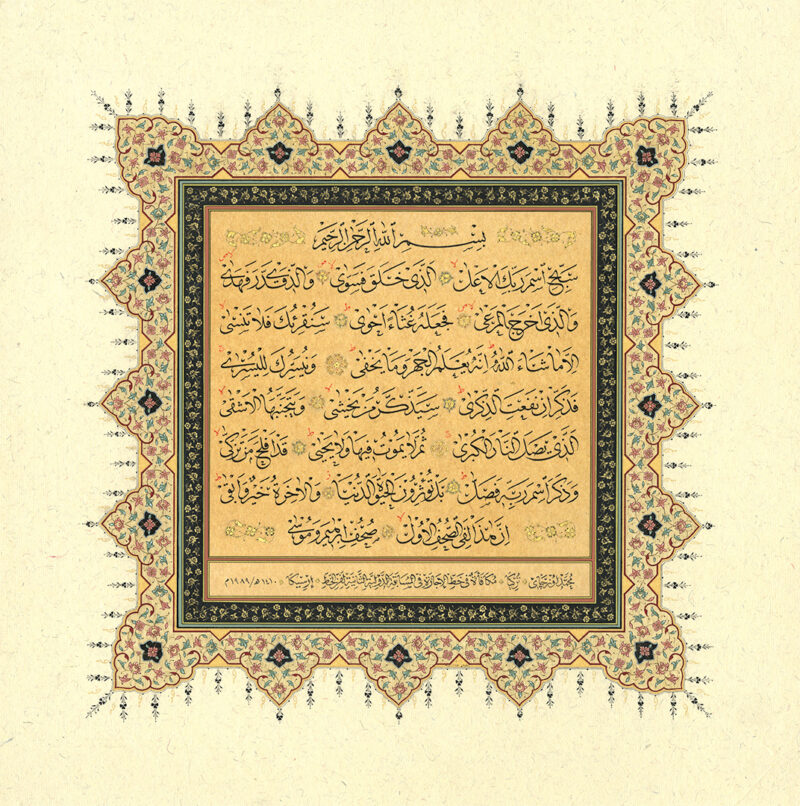 بسم الله الرحمن الرحيم
سبح اسم ربك الاعلى الذى خلق فسوى والذى قدر فهدى
والذى اخرج المرعى فجعله غثاء احوى سنقرئك فلا تنسى
الا ما شاء الله انه يعلم الجهر وما يخفى ونيسرك لليسرى
فذكر ان نفعت الذكرى سيذكر من يخشى ويتجنبها الاشقى
الذى يصلى النار الكبرى ثم لا يموت فيها ولا يحيى قد افلح من تزكى
وذكر اسم ربه فصلى بل تؤثرون الحيوة الدنيا والاخرة خير وابقى
ان هذا لفى الصحف الاولى صحف ابرهيم وموسى
محمد تركيا في خط الإجازة في المسابقة الدولية الثانية لفن الخط إرسيكا ١٤١٠هـ/١٩٨٩م